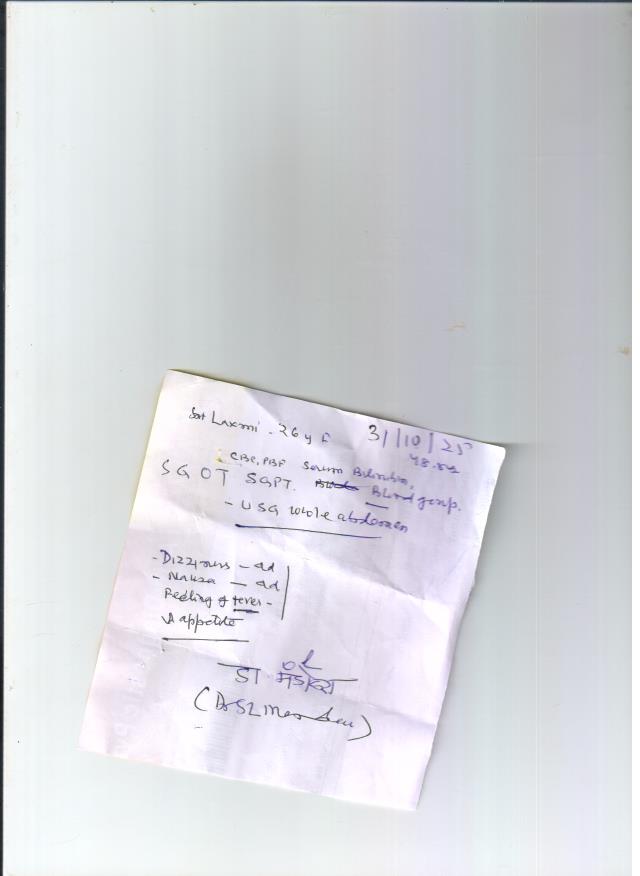 Smt Laxmi - 26 y F 31/10/25
CBC, PBF Serum Bilirubin,
SGOT SGPT. Blood group.
- USG whole abdomen
- Dizziness - 4d
- Nausea - 4d
Feeling of fever -
↓ appetite
डा
(Dr SL